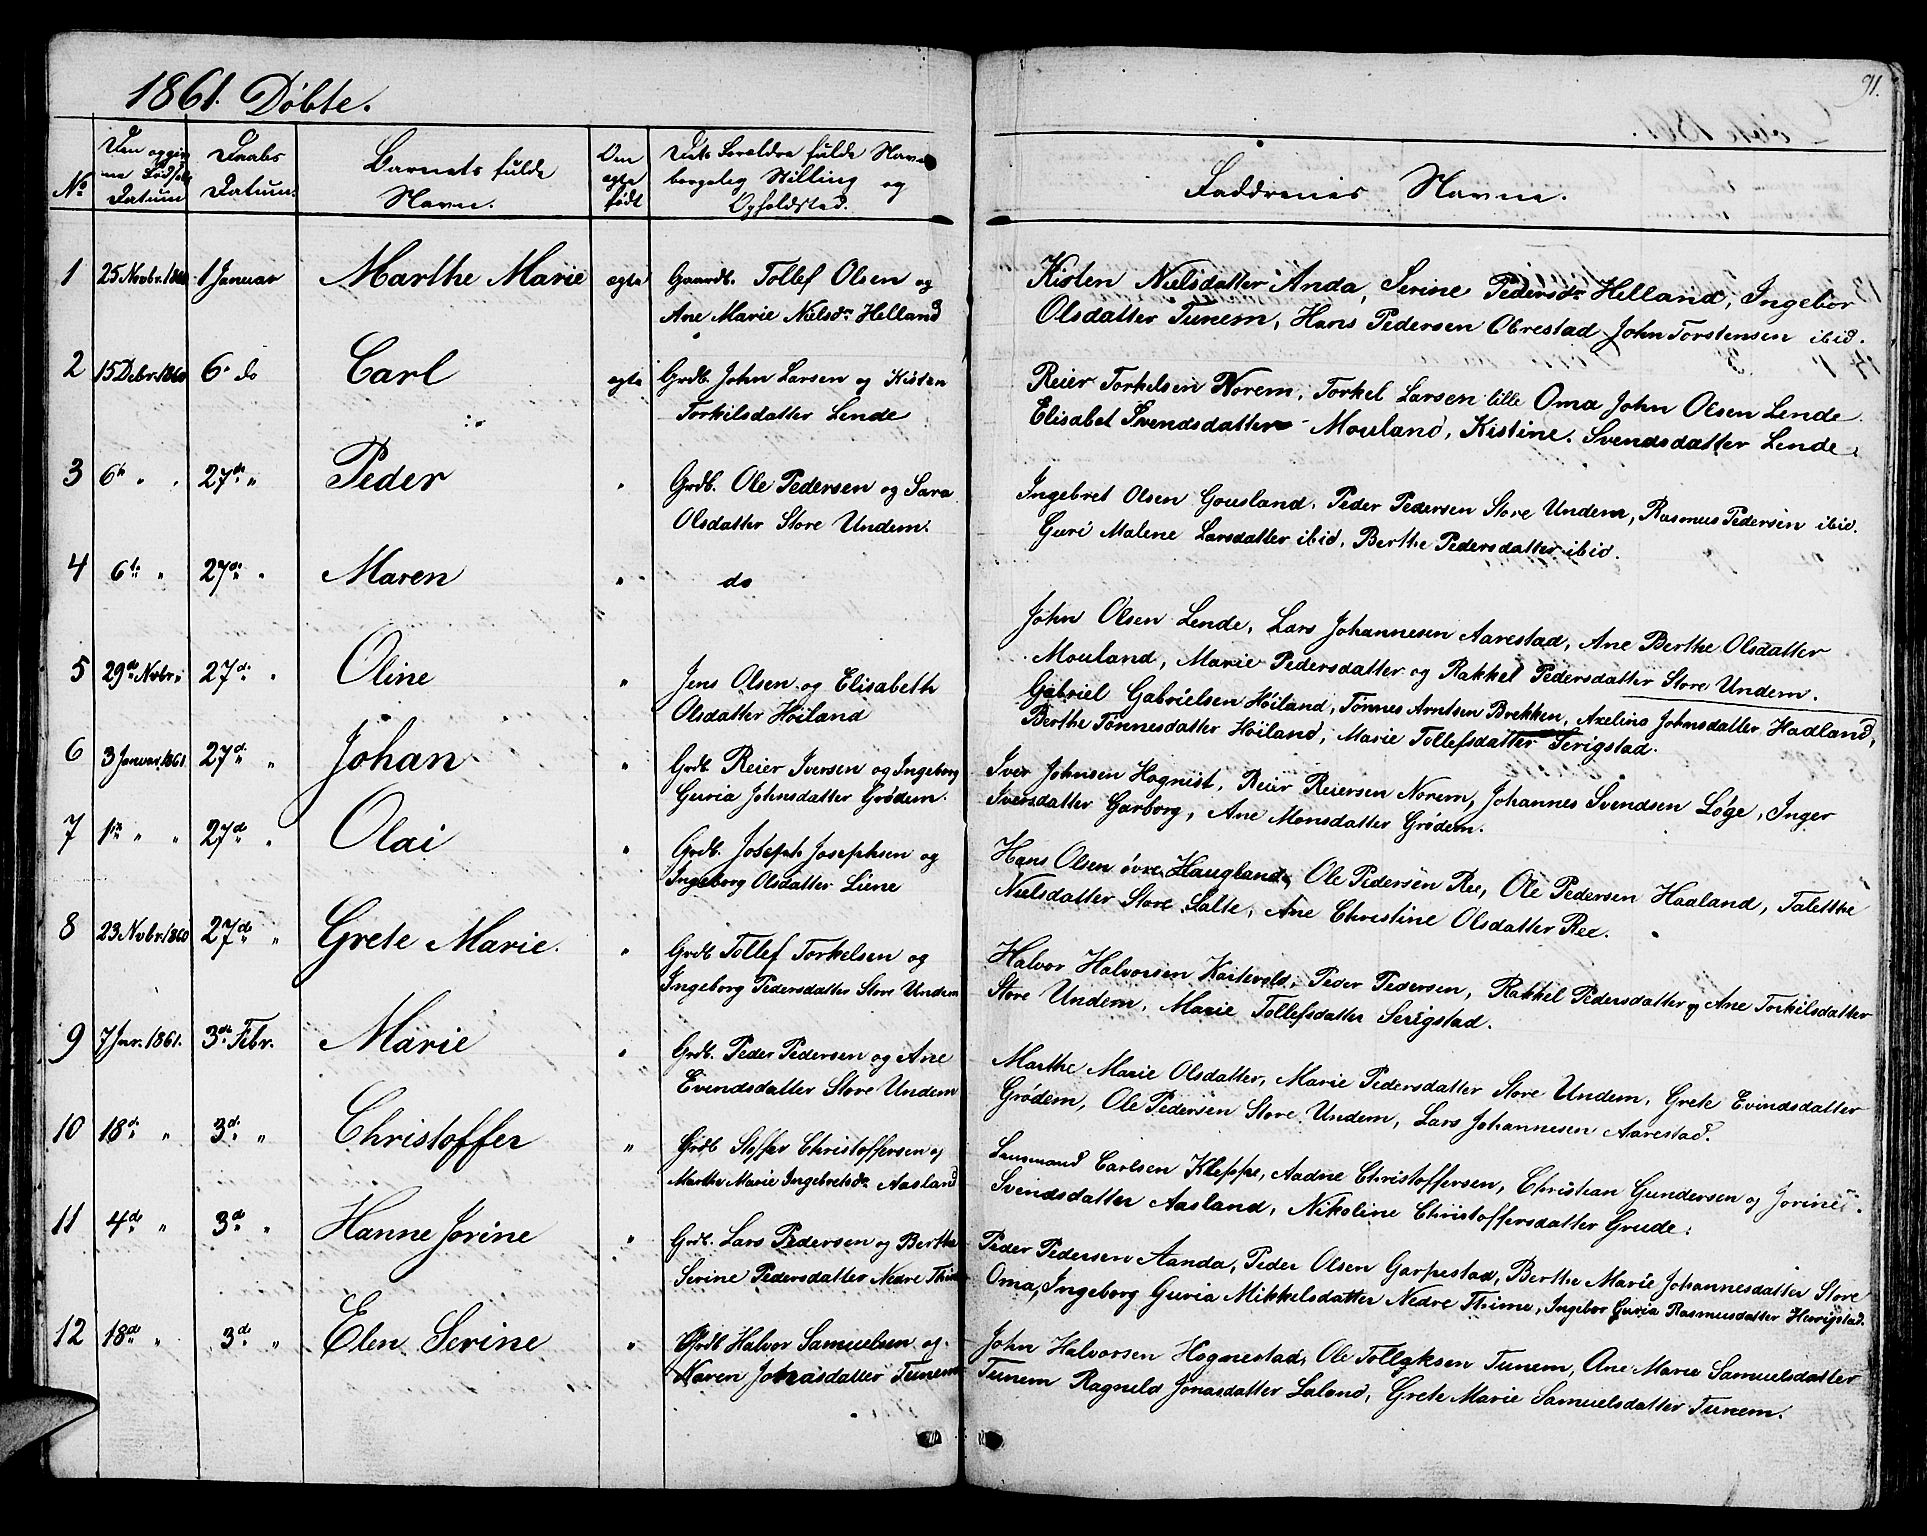 1861. Døbte.
91.
No
Den opgivne Fødsels Datum
Daabs Datum.
Barnets fulde Navn.
Om egte født
Dets Foreldre fulde Navn borgeleg Stilling og Opholdsted.
Faddrenes Navne.
1 25 Novbr. 1860 1 Januar Marthe Marie egte Gaardb. Tollef Olsen og
Ane Marie Nielsdr Helland
Kisten Nielsdatter Anda, Serine Pedersdr Helland, Ingebor
Olsdatter Tunem, Hans Pedersen Obrestad John Torstensen ibid.
2 15 Debr. 1860 6 do Carl egte Grdb. John Larsen og Kisten
Torkilsdatter Lende
Reier Torkelsen Norem, Torkel Larsen lille Oma John Olsen Lende
Elisabet Svendsdatter Mouland, Kistine Svendsdatter Lende.
3 6te " " 27de " Peder " Grdb. Ole Pedersen og Sara
Olsdatter Store Undem.
Ingebret Olsen Gousland, Peder Pedersen Store Undem, Rasmus Pedersen ibid.
Guri Malene Larsdatter ibid, Berthe Pedersdatter ibid.
4 6te " 27de " Maren " do
John Olsen Lende, Lars Johannesen Aarestad, Ane Berthe Olsdatter
Mouland, Marie Pedersdatter og Rakkel Pedersdatter Store Undem.
5 29de Novbr. 27de " Oline " Jens Olsen og Elisabeth
Olsdatter Høiland
Gabriel Gabrielsen Høiland, Tønnes Arntsen Brekken, Axeline Johnsdatter Hadland,
Berthe Tønnesdatter Høiland, Marie Tollefsdatter Serigstad.
6 3 Januar 1861 27de " Johan " Grdb. Reier Iversen og Ingeborg
Guria Johnsdatter Grødem.
Iver Johnsen Hognist, Reier Reiersen Norem, Johannes Svendsen Løge, Inger
Iversdatter Garborg, Ane Monsdatter Grødem.
7 1te " " 27de " Olai " Grdb. Joseph Josephsen og
Ingeborg Olsdatter Liene
Hans Olsen øvre Haugland, Ole Pedersen Ree, Ole Pedersen Haaland, Taletthe
Nielsdatter Store Salte, Ane Christine Olsdatter Ree.
8 23 Novbr. 1860 27de " Grete Marie. " Grdb Tollef Torkelsen og
Ingeborg Pedersdatter Store Undem
Halvor Halvorsen Kartevold, Peder Pedersen, Rakkel Pedersdatter og Ane Torkilsdatter
Store Undem, Marie Tollefsdatter Serigstad.
9 7 Jnr. 1861. 3de Febr. Marie " Grdb. Peder Pedersen og Ane
Evindsdatter Store Undem
Marthe Marie Olsdatter, Marie Pedersdatter Store Undem, Grete Evindsdatter
Grødem, Ole Pedersen Store Undem, Lars Johannesen Aarestad.
10 18de " 3de " Christoffer " Grdb Stoffer Christoffersen og
Marthe Marie Ingebretsdr Aasland
Carlsen Kleppe, Aadne Christoffersen, Christian Gundersen og Jorine
Svendsdatter Aasland, Nikoline Christoffersdatter Grude.
11 4de " 3de " Hanne Jorine " Grdb. Lars Pedersen og Berthe
Serine Pedersdatter Nedre Thime
Peder Pedersen Aanda, Peder Olsen Garpestad, Berthe Marie Johannesdatter Store
Oma, Ingeborg Guria Mikkelsdatter Nedre Thime, Ingebor Guria Rasmusdatter Herrigstad.
12 18de " 3de " Elen Serine " Grdb Halvor Samuelsen og
Maren Jonasdatter Tunem
John Halvorsen Hognestad, Ole Tollaksen Tunem, Ane Marie Samuelsdatter
Tunem Ragneld Jonasdatter Laland, Grete Marie Samuelsdatter Tunem.